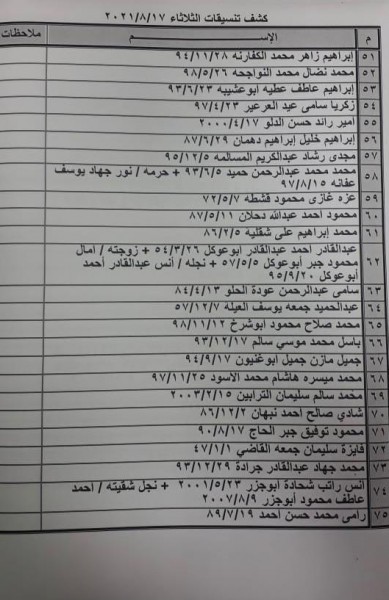 كشف تنسيقات الثلاثاء ٢٠٢١/٨/١٧
م الإســـم ملاحظات
٥١ إبراهيم زاهر محمد الكفارنه ٩٤/١١/٢٨
٥٢ محمد نضال محمد النواجحه ٩٨/٥/٢٦
٥٣ إبراهيم عاطف عطيه ابوعشيبه ٩٣/٦/٢٣
٥٤ زكريا سامى عيد العرعير ٩٧/٤/٢٣
٥٥ امير رائد حسن الدلو ٢٠٠٠/٤/١٧
٥٦ إبراهيم خليل إبراهيم دهمان ٨٧/٦/٢٩
٥٧ مجدى رشاد عبدالكريم المسالمه ٩٥/١٢/٥
٥٨ محمد محمد عبدالرحمن حميد ٩٣/٦/٥ + حرمه / نور جهاد يوسف
عفانه ٩٧/٨/١٥
٥٩ عزه غازى محمود قشطه ٧٢/٥/٧
٦٠ محمود احمد عبدالله دحلان ٨٧/٥/١١
٦١ محمد إبراهيم على شقليه ٨٦/٢/٥
٦٢ عبدالقادر احمد عبدالقادر ابوعوكل ٥٤/٣/٢٦ + زوجته / امال
محمود جبر ابوعوكل ٥٧/٥/٥ + نجله / أنس عبدالقادر أحمد
ابوعوكل ٩٥/٩/٢٠
٦٣ سامى عبدالرحمن عودة الحلو ٨٤/٤/١٣
٦٤ عبدالحميد جمعه يوسف العيله ٥٧/١٢/٧
٦٥ محمد صلاح محمود ابوشرخ ٩٨/١١/١٢
٦٦ باسل محمد موسي سالم ٩٣/١٢/١٧
٦٧ جميل مازن جميل ابوغنيون ٩٤/٩/١٧
٦٨ محمد ميسره هاشام محمد الأسود ٩٧/١١/٢٥
٦٩ محمد سالم سليمان الترابين ٢٠٠٣/٢/١٥
٧٠ شادي صالح احمد نبهان ٨٦/١٢/٢
٧١ محمود توفيق جبر الحاج ٩٠/٨/١٧
٧٢ فايزة سليمان جمعه القاضي ٤٧/١/١
٧٣ محمد جهاد عبدالقادر جرادة ٩٣/١٢/٢٩
٧٤ أنس راتب شحادة أبوجزر ٢٠٠١/٥/٢٣ + نجل شقيقته / احمد
عاطف محمود أبوجزر ٢٠٠٧/٨/٩
٧٥ رامى محمد حسن احمد ٨٩/٧/١٩